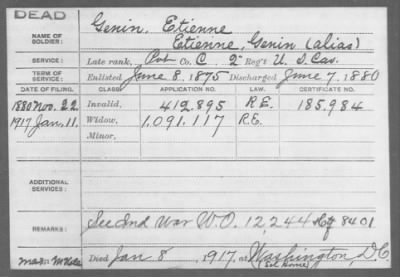 DEAD
NAME OF SOLDIER: Genin, Etienne
Etienne, Genin (alias)
SERVICE: Late rank, Pvt Co. C 2" Reg't U.S. Cav.
TERM OF SERVICE: Enlisted June 8, 1875 Discharged June 7, 1880
DATE OF FILING. CLASS. APPLICATION NO. LAW. CERTIFICATE NO.
1880 Nov. 22 Invalid, 419.895 R.E. 185,984
1917 Jan. 11. Widow, 1.091.117 R.E.
Minor,
ADDITIONAL SERVICES:
REMARKS: See Ind War W.O. 12,244 8401
Died Jan 8, 1917, at Washington, D.C.
(Sol Home)